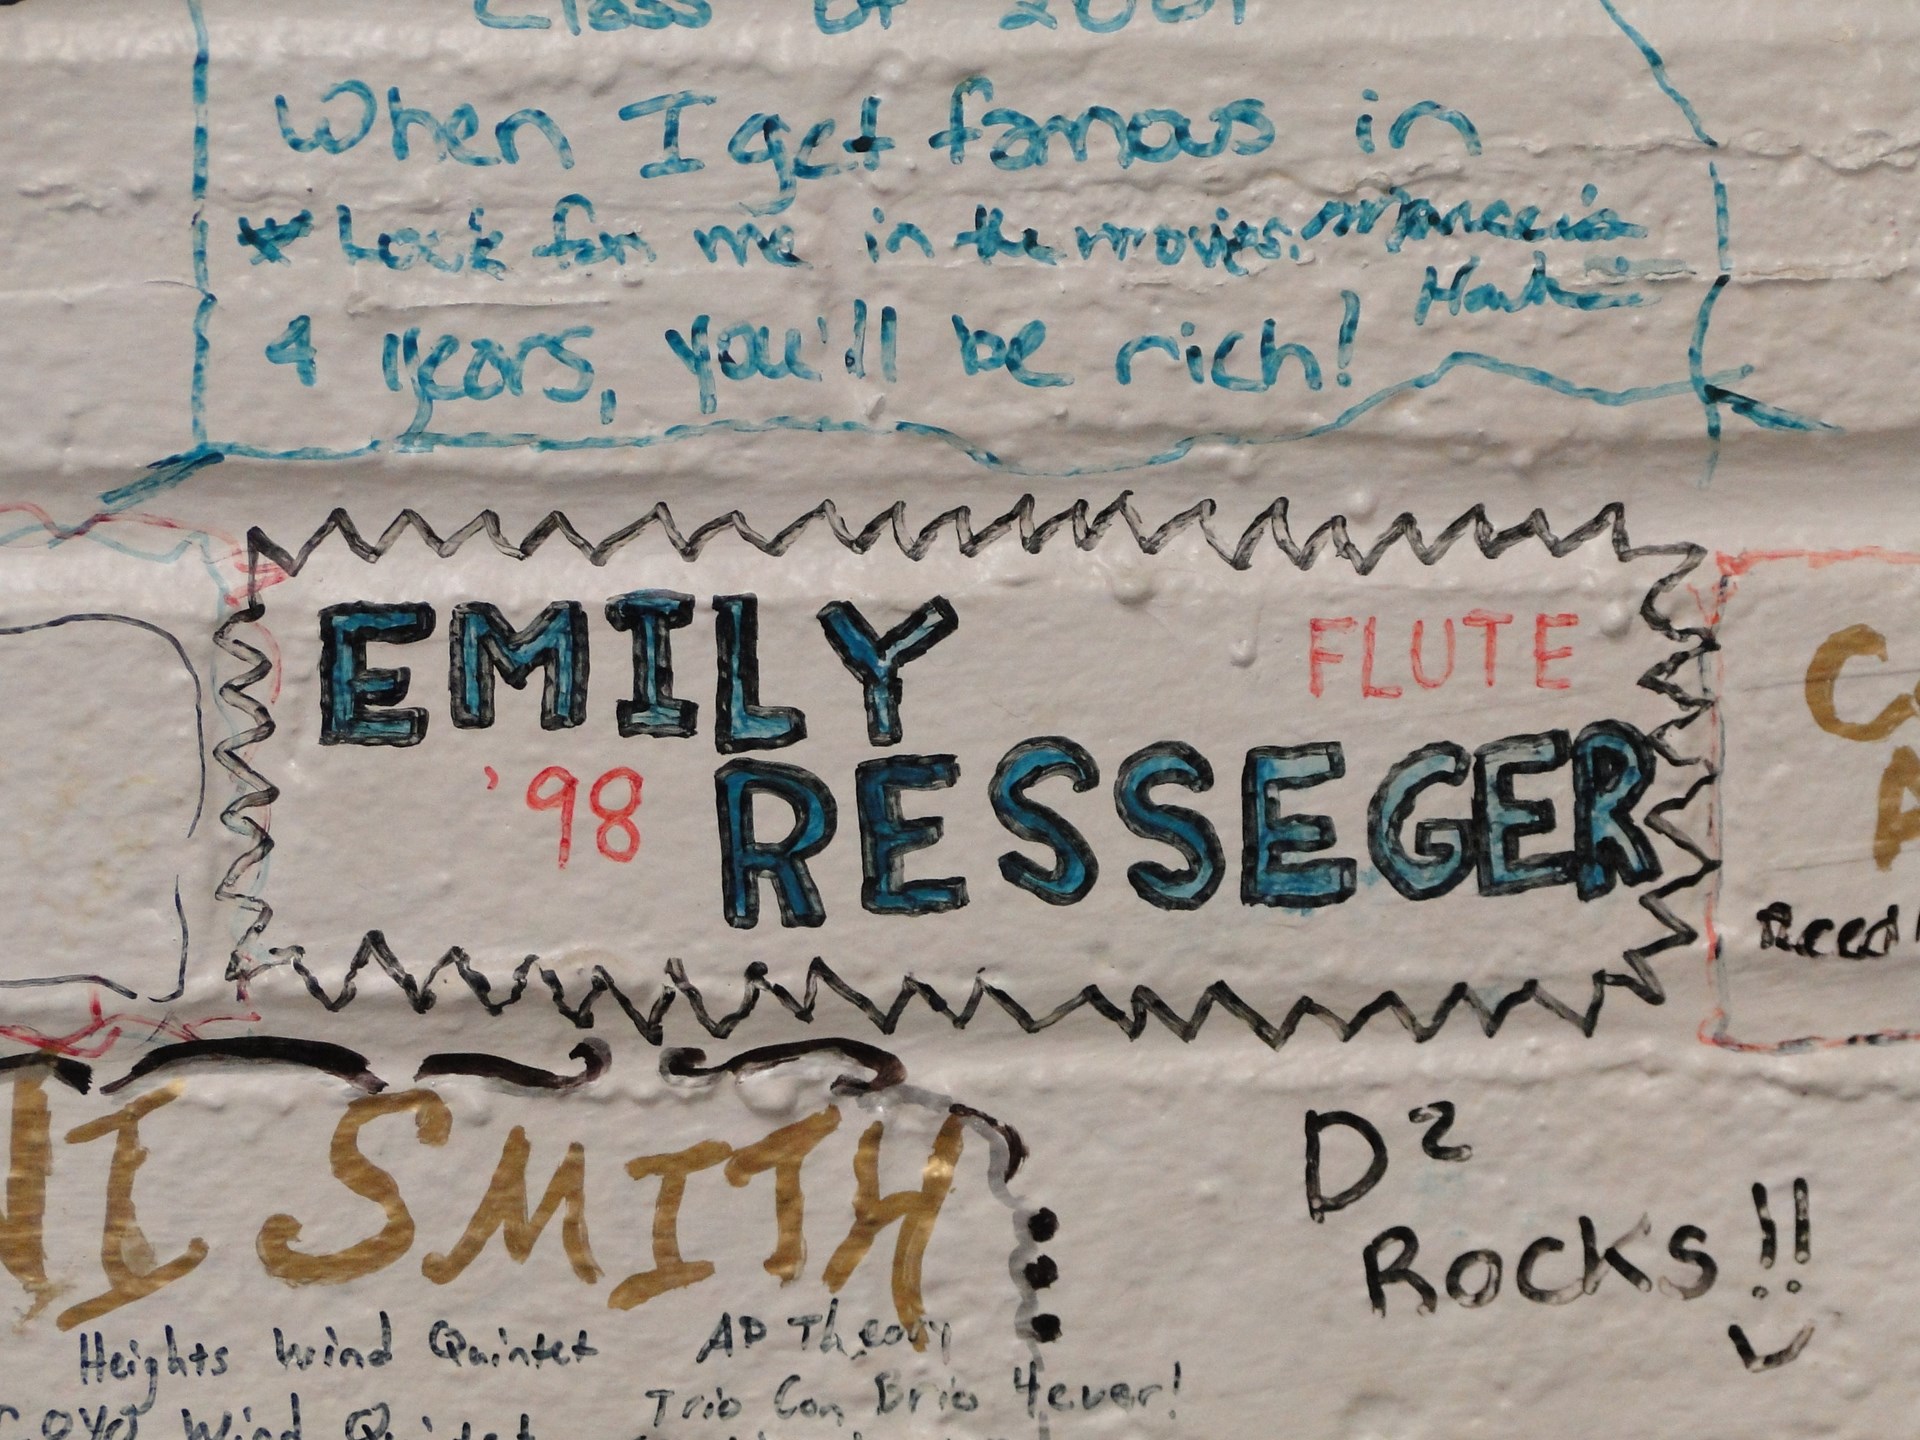 Class of 2001
When I get famous in
* Look for me in the movies.
4 years, you'll be rich!
EMILY
FLUTE
'98
RESSEGER
Reed
NI SMITH
D²
Rocks!!
Heights Wind Quintet
AP Theory
Trio Con Brio 4ever!
Wind Quintet